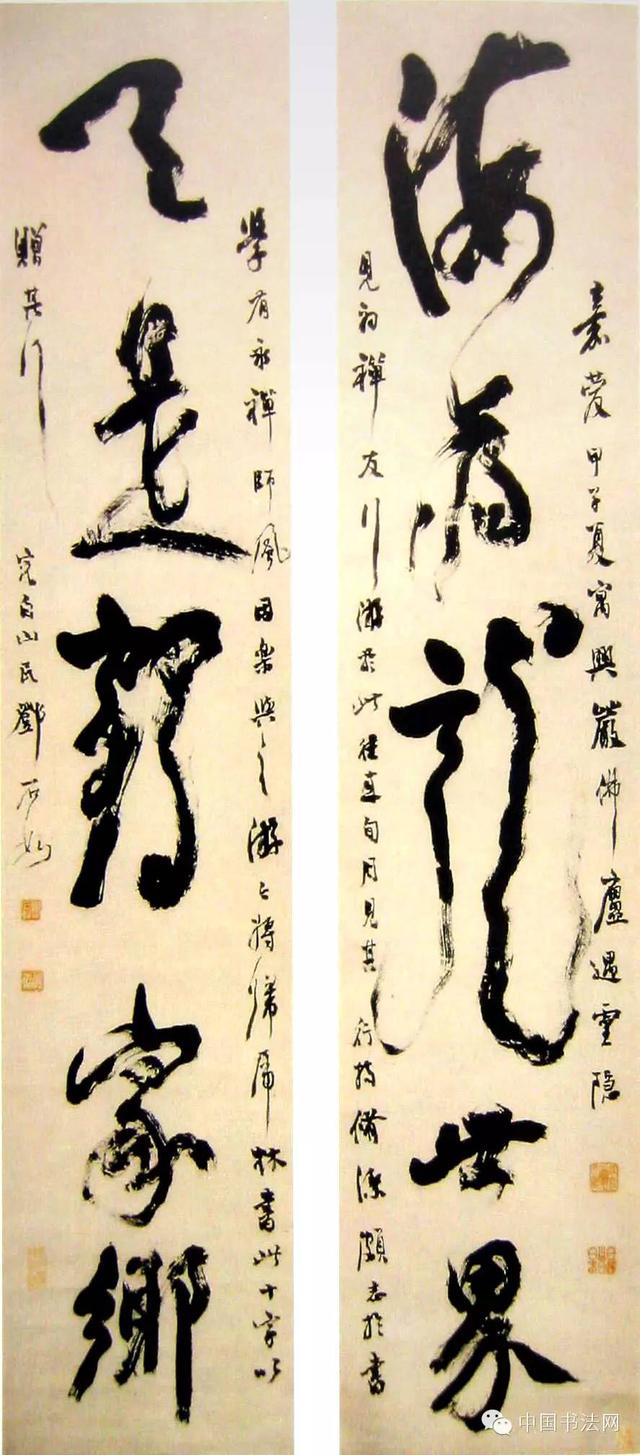 嘉慶甲子夏寓興嚴佛廬遇靈隱
海為龍世界
見初禪友行游於此旬月見其行持脩潔頗志於書
學有永禪師風因樂與之游已將歸虎林書此十字以
天是鶴家鄉
贈其行
完白山民鄧石如
中国书法网